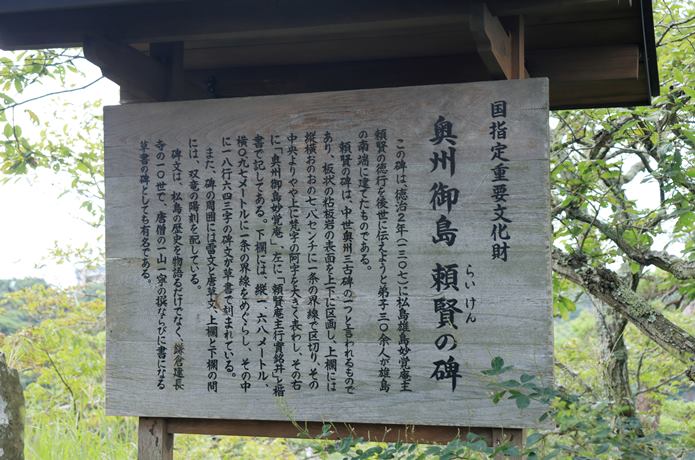 国指定重要文化財
奥州御島 頼賢の碑
らいけん
この碑は、徳治2年(一三〇七)に松島雄島妙覚庵主
頼賢の徳行を後世に伝えようと弟子三〇余人が雄島
の南端に建てたものである。
頼賢の碑は、中世奥州三古碑の一つと言われるもので
あり、板状の粘板岩の表面を上下に区画し、上欄には
縦横おのおの七八センチに一条の界線で区切り、その
中央よりやや上に梵字の阿字を大きく表わし、その右
に「奥州御島妙覚庵」、左に「頼賢庵主行實銘并」と楷
書で記してある。下欄には、縦一六八メートル、
横〇九七メートルに一条の界線をめぐらし、その中
に一八行六四三字の碑文が草書で刻まれている。
また、碑の周囲には雷文と唐草文、上欄と下欄の間
には、双竜の陽刻を配している。
碑文は、松島の歴史を物語るだけでなく、鎌倉建長
寺の一〇世で、唐僧の一山一寧の撰ならびに書になる
草書の碑としても有名である。